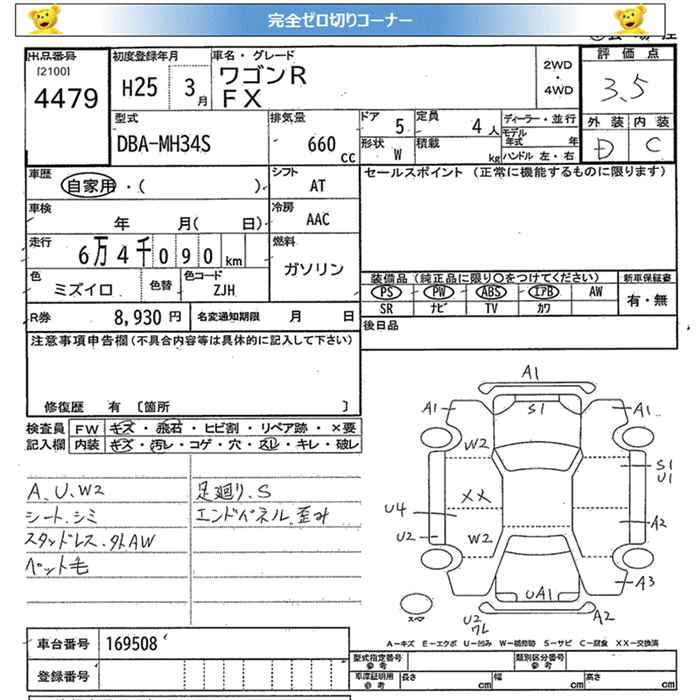 完全ゼロ切りコーナー
出品番号
[2100]
4479
初度登録年月
H25 3月
車名・グレード
ワゴンR
FX
2WD
・
4WD
評価点
3.5
外装 内装
D C
型式
DBA-MH34S
排気量
660 cc
ドア 5
定員 4人
形状 W
積載 kg
ディーラー・並行
モデル年式 年
ハンドル 左・右
車歴
自家用・( )
シフト
AT
セールスポイント (正常に機能するものに限ります)
車検
年 月( 日)
冷房
AAC
走行
6万4千090km
燃料
ガソリン
色
ミズイロ
色替
色コード
ZJH
装備品 (純正品に限り〇をつけてください)
新車保証書
PS PW ABS エアB AW
有・無
SR ナビ TV カワ
R券 8,930円
名変通知期限 月 日
後日品
注意事項申告欄(不具合内容等は具体的に記入して下さい)
修復歴 有 〔箇所 〕
検査員
記入欄
FW キズ・飛石・ヒビ割・リペア跡・×要
内装 キズ・汚レ・コゲ・穴・スレ・キレ・破レ
A.U.W2
シート.シミ
スタッドレス.外AW
ペット毛
足廻り.S
エンドパネル.歪み
A1
A1
S1
A1
W2
S1
U1
XX
U4
A2
U2
W2
A3
UA1
スペア
U2
ワレ
A2
A-キズ E-エクボ U-凹み W-補修跡 S-サビ C-腐食 XX-交換済
車台番号 169508
登録番号
型式指定番号
参考
類別区分番号
参考
車庫証明用
参考
長さ cm
幅 cm
高さ cm